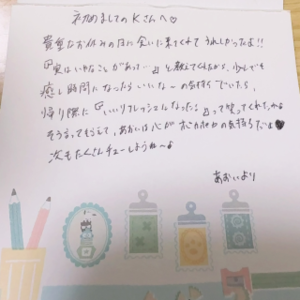 初めましてのKさんへ♡
貴重なお休みの日に会いに来てくれてうれしかったよ!!
『実はいやなことがあって…』と教えてくれたから、少しでも
癒しの時間になったらいいなーの気持ちでいたら、
帰り際に『いいリフレッシュになった』って笑ってくれたから
そう言ってもらえて、あおいは心がぽかぽかの気持ちだよ♥
次もたくさんチューしようね〜よ
あおいより